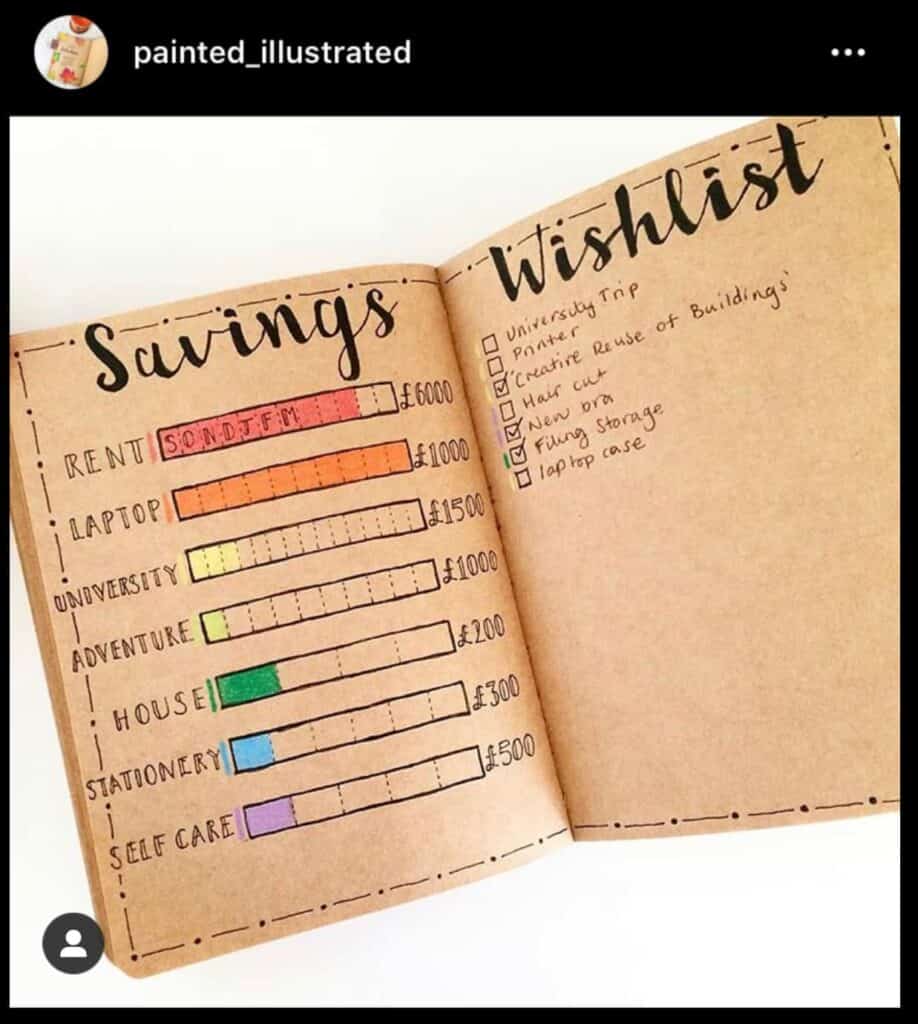 painted_illustrated
Savings
RENT SONDJFM £6000
LAPTOP £1000
UNIVERSITY £1500
ADVENTURE £1000
HOUSE £200
STATIONERY £300
SELF CARE £500
Wishlist
University Trip
Printer
'Creative Reuse of Buildings'
Hair cut
New bra
Filing Storage
laptop case